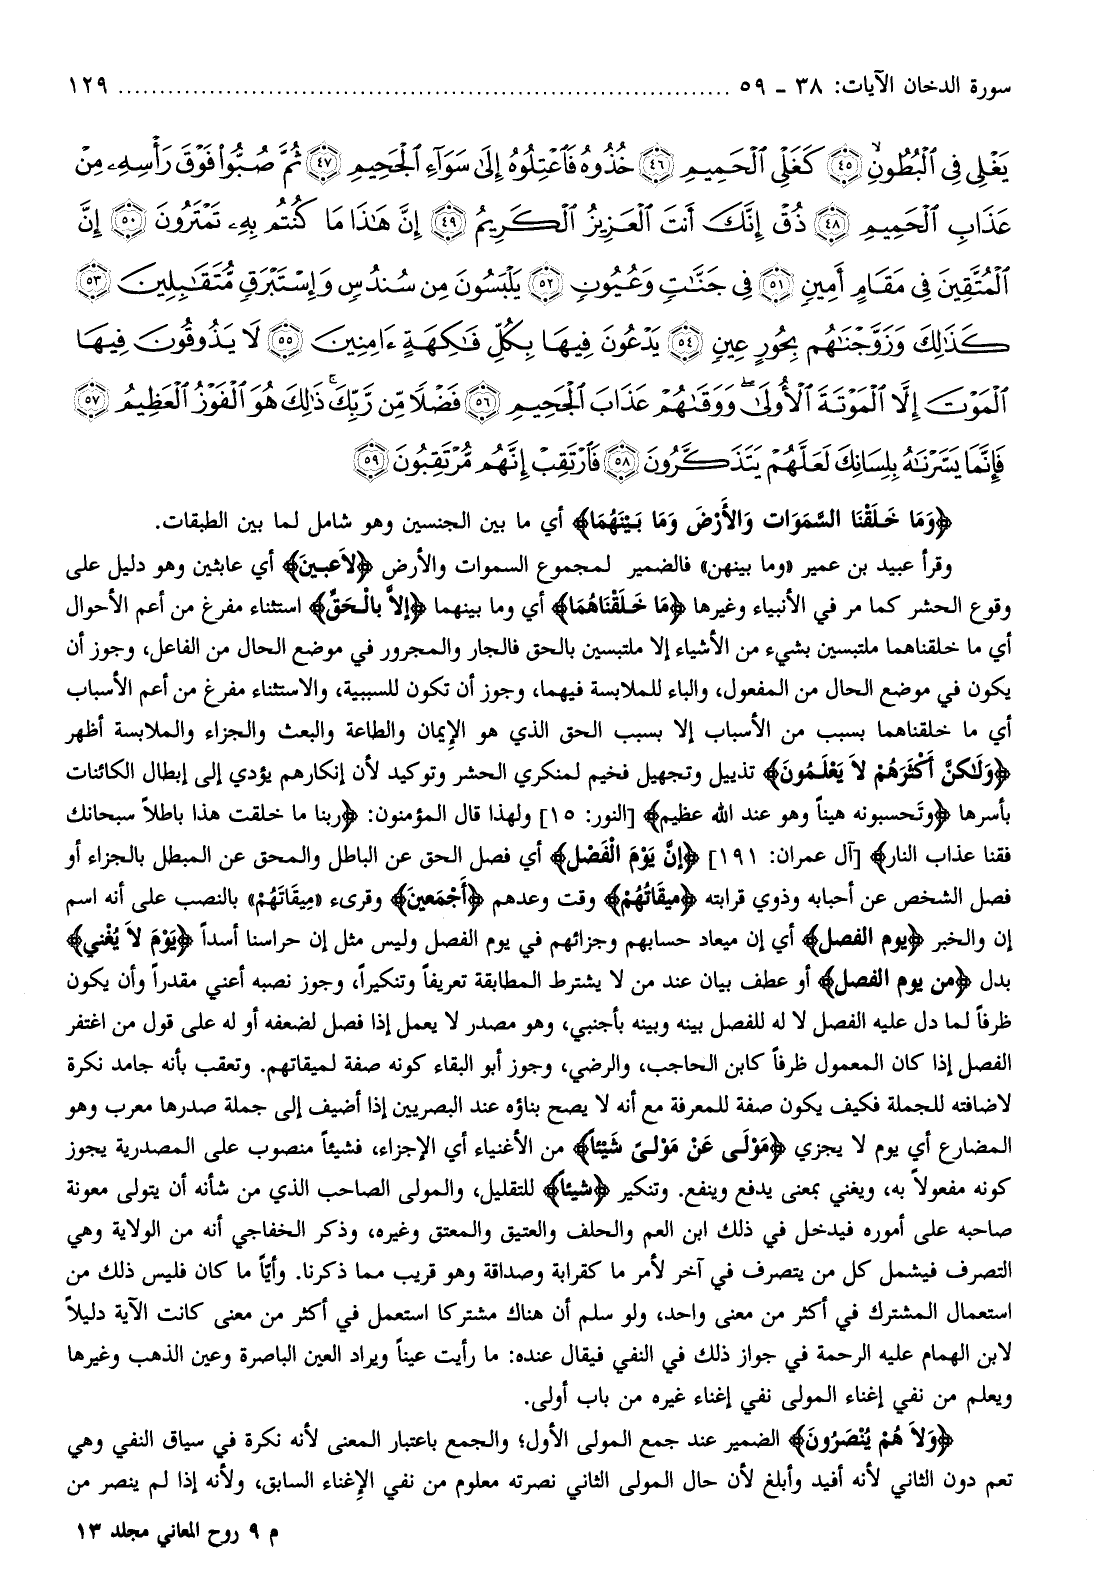 سورة الدخان الآيات: ٣٨ ـ ٥٩ ........................................................................ ١٢٩
يَغْلِى فِى ٱلْبُطُونِ ۝٤٥ كَغَلْىِ ٱلْحَمِيمِ ۝٤٦ خُذُوهُ فَٱعْتِلُوهُ إِلَىٰ سَوَآءِ ٱلْجَحِيمِ ۝٤٧ ثُمَّ صُبُّوا۟ فَوْقَ رَأْسِهِۦ مِنْ
عَذَابِ ٱلْحَمِيمِ ۝٤٨ ذُقْ إِنَّكَ أَنتَ ٱلْعَزِيزُ ٱلْكَرِيمُ ۝٤٩ إِنَّ هَـٰذَا مَا كُنتُم بِهِۦ تَمْتَرُونَ ۝٥٠ إِنَّ
ٱلْمُتَّقِينَ فِى مَقَامٍ أَمِينٍ ۝٥١ فِى جَنَّـٰتٍ وَعُيُونٍ ۝٥٢ يَلْبَسُونَ مِن سُندُسٍ وَإِسْتَبْرَقٍ مُّتَقَـٰبِلِينَ ۝٥٣
كَذَٰلِكَ وَزَوَّجْنَـٰهُم بِحُورٍ عِينٍ ۝٥٤ يَدْعُونَ فِيهَا بِكُلِّ فَـٰكِهَةٍ ءَامِنِينَ ۝٥٥ لَا يَذُوقُونَ فِيهَا
ٱلْمَوْتَ إِلَّا ٱلْمَوْتَةَ ٱلْأُولَىٰ ۖ وَوَقَـٰهُمْ عَذَابَ ٱلْجَحِيمِ ۝٥٦ فَضْلًا مِّن رَّبِّكَ ۚ ذَٰلِكَ هُوَ ٱلْفَوْزُ ٱلْعَظِيمُ ۝٥٧
فَإِنَّمَا يَسَّرْنَـٰهُ بِلِسَانِكَ لَعَلَّهُمْ يَتَذَكَّرُونَ ۝٥٨ فَٱرْتَقِبْ إِنَّهُم مُّرْتَقِبُونَ ۝٥٩
﴿وَمَا خَلَقْنَا السَّمَوَات وَالأَرْضَ وَمَا بَيْنَهُمَا﴾ أي ما بين الجنسين وهو شامل لما بين الطبقات.
وقرأ عبيد بن عمير «وما بينهن» فالضمير لمجموع السموات والأرض ﴿لاَعبينَ﴾ أي عابثين وهو دليل على
وقوع الحشر كما مر في الأنبياء وغيرها ﴿مَا خَلَقْنَاهُمَا﴾ أي وما بينهما ﴿إلاَّ بالْحَقَّ﴾ استثناء مفرغ من أعم الأحوال
أي ما خلقناهما ملتبسين بشيء من الأشياء إلا ملتبسين بالحق فالجار والمجرور في موضع الحال من الفاعل، وجوز أن
يكون في موضع الحال من المفعول، والباء للملابسة فيهما، وجوز أن تكون للسببية، والاستثناء مفرغ من أعم الأسباب
أي ما خلقناهما بسبب من الأسباب إلا بسبب الحق الذي هو الإيمان والطاعة والبعث والجزاء والملابسة أظهر
﴿وَلَكنَّ أَكْثَرَهُمْ لاَ يَعْلَمُونَ﴾ تذييل وتجهيل فخيم لمنكري الحشر وتوكيد لأن إنكارهم يؤدي إلى إبطال الكائنات
بأسرها ﴿وتَحسبونه هيناً وهو عند الله عظيم﴾ [النور: ١٥] ولهذا قال المؤمنون: ﴿ربنا ما خلقت هذا باطلاً سبحانك
فقنا عذاب النار﴾ [آل عمران: ١٩١] ﴿إنَّ يَوْمَ الْفَصْل﴾ أي فصل الحق عن الباطل والمحق عن المبطل بالجزاء أو
فصل الشخص عن أحبابه وذوي قرابته ﴿ميقَاتُهُمْ﴾ وقت وعدهم ﴿أَجْمَعينَ﴾ وقرىء «مِيقَاتَهُمْ» بالنصب على أنه اسم
إن والخبر ﴿يوم الفصل﴾ أي إن ميعاد حسابهم وجزائهم في يوم الفصل وليس مثل إن حراسنا أسداً ﴿يَوْمَ لاَ يُغْني﴾
بدل ﴿من يوم الفصل﴾ أو عطف بيان عند من لا يشترط المطابقة تعريفاً وتنكيراً، وجوز نصبه أعني مقدراً وأن يكون
ظرفاً لما دل عليه الفصل لا له للفصل بينه وبينه بأجنبي، وهو مصدر لا يعمل إذا فصل لضعفه أو له على قول من اغتفر
الفصل إذا كان المعمول ظرفاً كابن الحاجب، والرضي، وجوز أبو البقاء كونه صفة لميقاتهم. وتعقب بأنه جامد نكرة
لاضافته للجملة فكيف يكون صفة للمعرفة مع أنه لا يصح بناؤه عند البصريين إذا أضيف إلى جملة صدرها معرب وهو
المضارع أي يوم لا يجزي ﴿مَوْلَى عَنْ مَوْلىً شَيْئاً﴾ من الأغنياء أي الإجزاء، فشيئاً منصوب على المصدرية يجوز
كونه مفعولاً به، ويغني بمعنى يدفع وينفع. وتنكير ﴿شيئاً﴾ للتقليل، والمولى الصاحب الذي من شأنه أن يتولى معونة
صاحبه على أموره فيدخل في ذلك ابن العم والحلف والعتيق والمعتق وغيره، وذكر الخفاجي أنه من الولاية وهي
التصرف فيشمل كل من يتصرف في آخر لأمر ما كقرابة وصداقة وهو قريب مما ذكرنا. وأيّاً ما كان فليس ذلك من
استعمال المشترك في أكثر من معنى واحد، ولو سلم أن هناك مشتركا استعمل في أكثر من معنى كانت الآية دليلاً
لابن الهمام عليه الرحمة في جواز ذلك في النفي فيقال عنده: ما رأيت عيناً ويراد العين الباصرة وعين الذهب وغيرها
ويعلم من نفي إغناء المولى نفي إغناء غيره من باب أولى.
﴿وَلاَ هُمْ يُنْصَرُونَ﴾ الضمير عند جمع المولى الأول؛ والجمع باعتبار المعنى لأنه نكرة في سياق النفي وهي
تعم دون الثاني لأنه أفيد وأبلغ لأن حال المولى الثاني نصرته معلوم من نفي الإغناء السابق، ولأنه إذا لم ينصر من
م ٩ روح المعاني مجلد ١٣